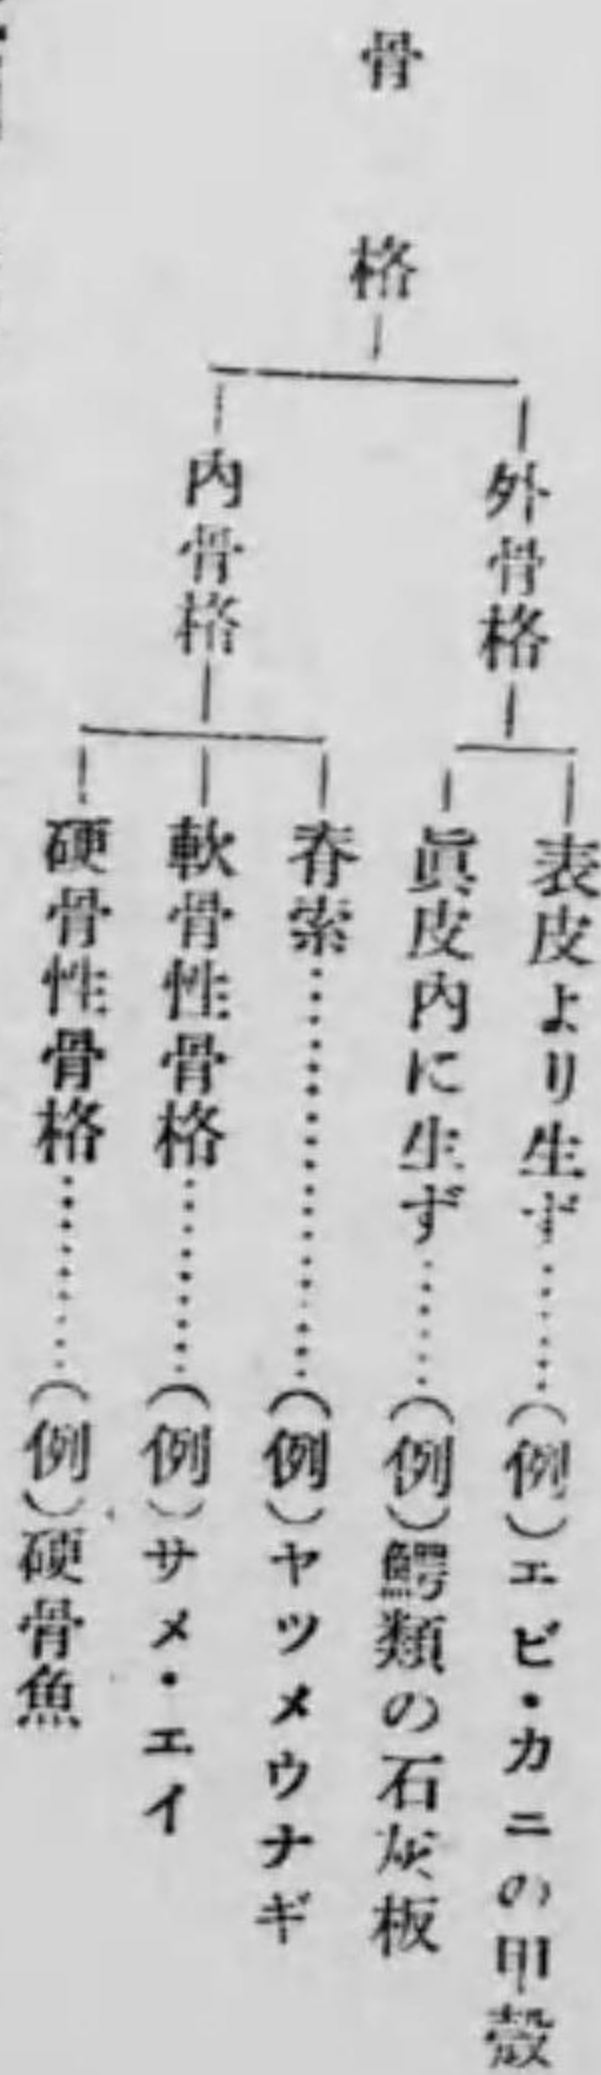 骨格
外骨格
表皮より生ず……(例)エビ・カニの甲殻
眞皮内に生ず……(例)鰐類の石灰板
内骨格
脊索……………(例)ヤツメウナギ
軟骨性骨格………(例)サメ・エイ
硬骨性骨格………(例)硬骨魚